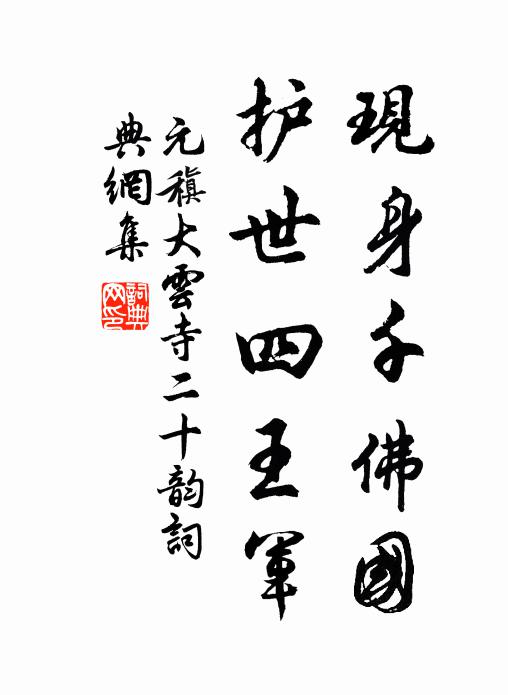 現身千佛國
护世四王軍
元稹大雲寺二十韵詞
典網集
詞典
网印